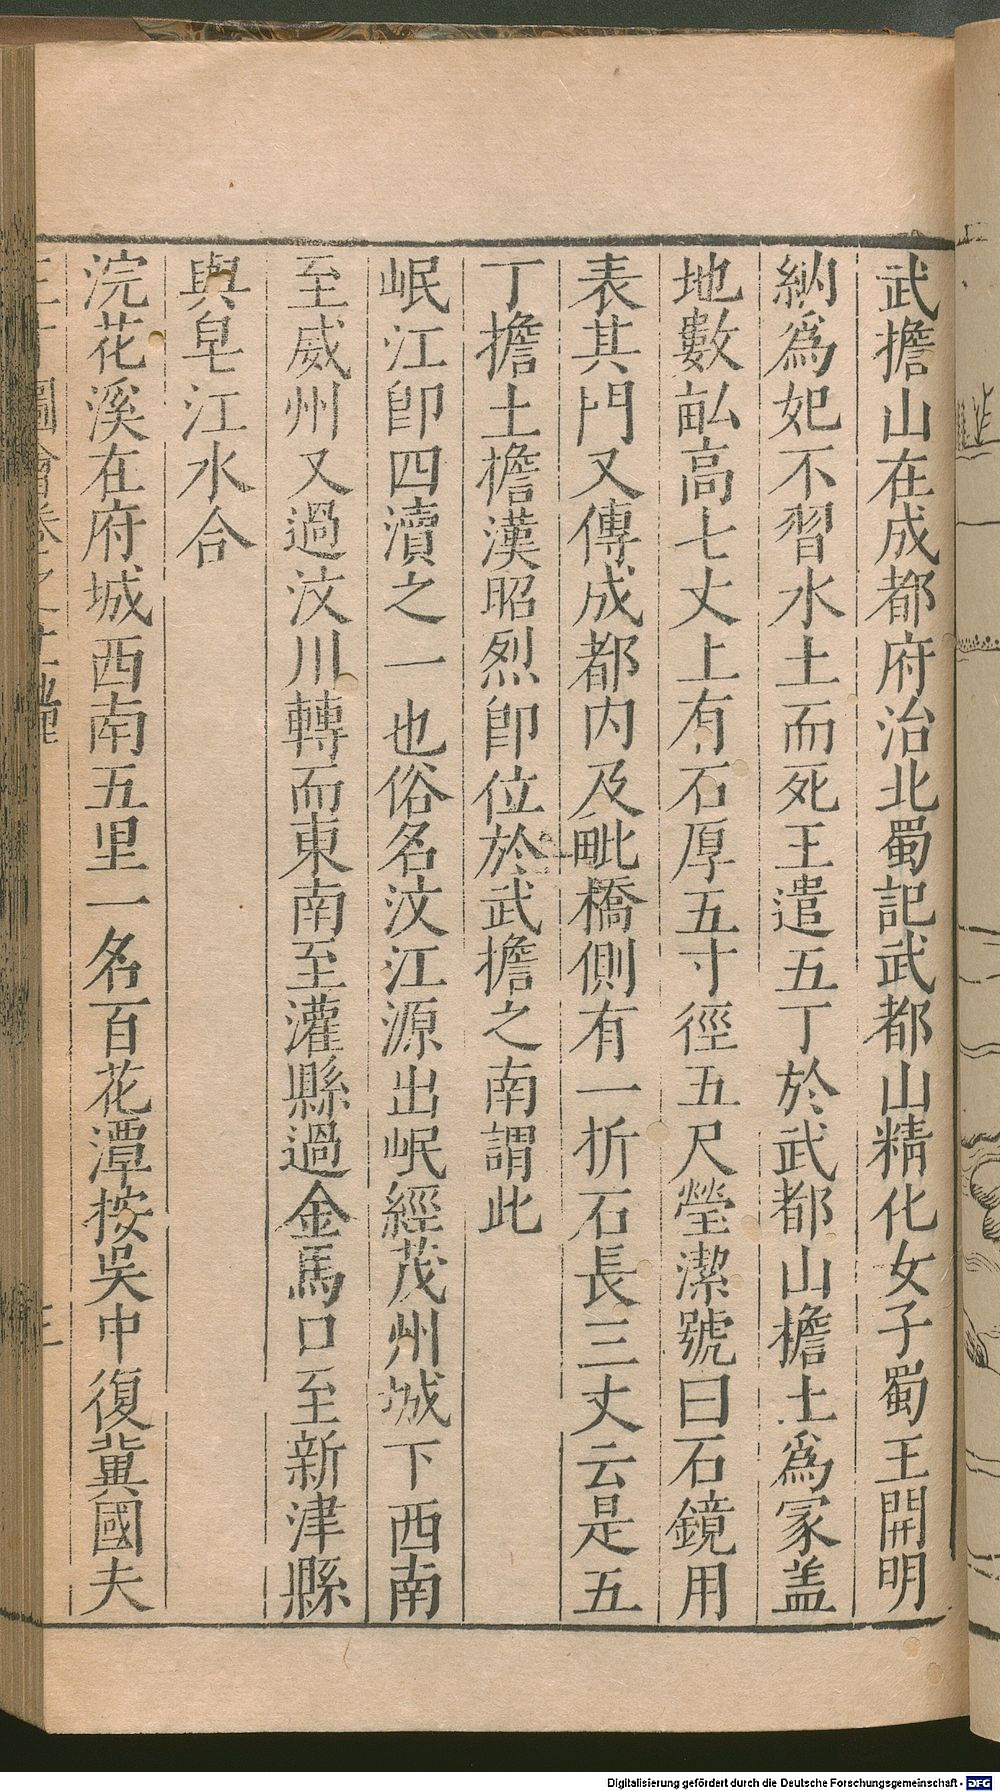 武擔山在成都府治北蜀記武都山精化女子蜀王開明
納爲妃不習水土而死王遣五丁於武都山擔土爲冢盖
地數畝高七丈上有石厚五寸徑五尺瑩潔號曰石鏡用
表其門又傳成都内及毗橋側有一折石長三丈云是五
丁擔土擔漢昭烈卽位於武擔之南謂此
岷江卽四瀆之一也俗名汶江源出岷經茂州城下西南
至威州又過汶川轉而東南至灌縣過金馬口至新津縣
與皂江水合
浣花溪在府城西南五里一名百花潭按吳中復冀國夫
圖會卷之
三
Digitalisierung gefördert durch die Deutsche Forschungsgemeinschaft - DFG